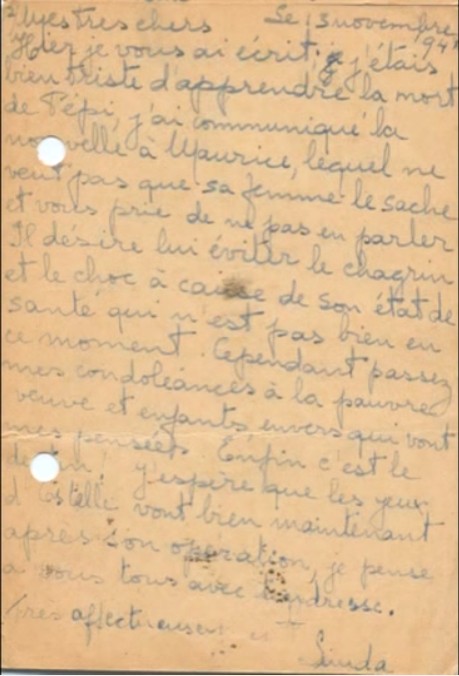 Mes tres chers Le 3 novembre
194
Hier je vous ai écrit, j'étais
bien triste d'apprendre la mort
de Pépi, j'ai communiqué la
nouvelle à Maurice, lequel ne
veut pas que sa femme le sache
et vous prie de ne pas en parler
Il désire lui éviter le chagrin
et le choc à cause de son état de
santé qui n'est pas bien en
ce moment. Cependant passez
mes condoléances à la pauvre
veuve et enfants envers qui vont
mes pensées Enfin c'est le
destin! j'espère que les yeux
d'Estelle vont bien maintenant
après son opération, je pense
a vous tous avec tendresse.
très affectueusement
Linda